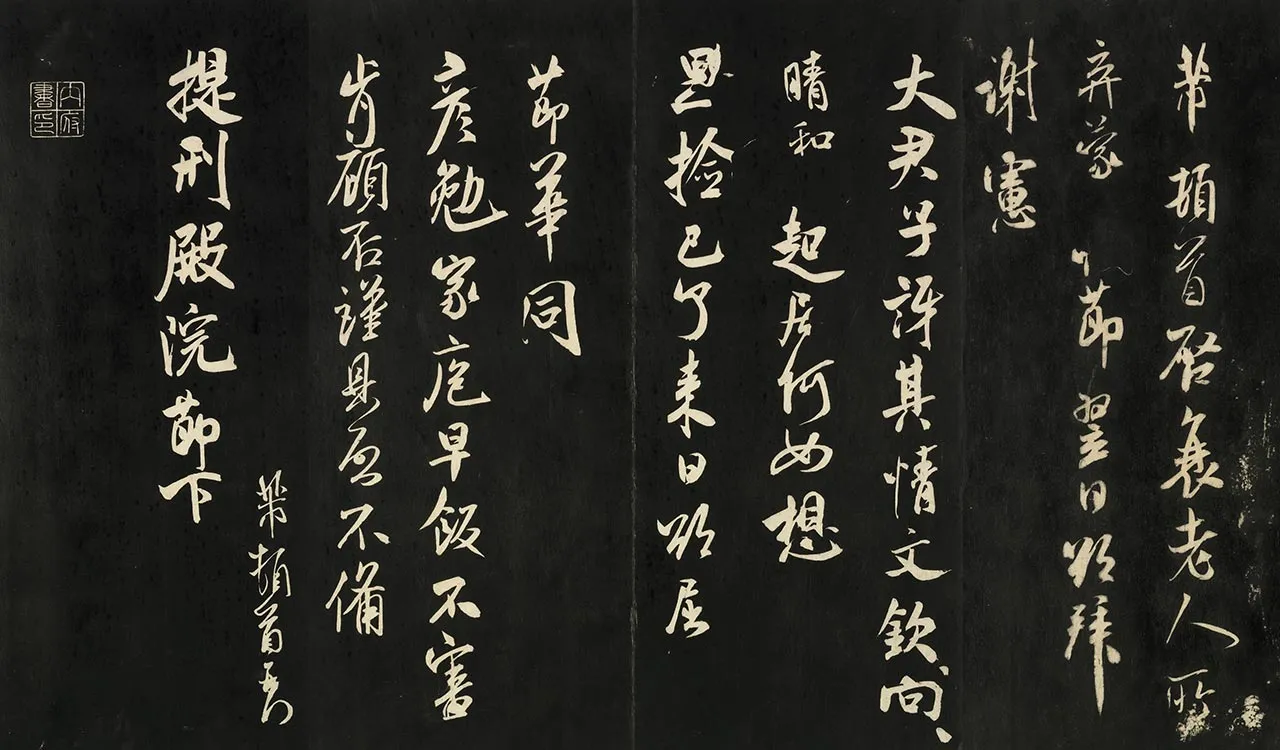 芾頓首啓衰老人所
弃蒙 節翌日欲拜
謝憲
大尹子訝其情文欽向
晴和 起居何如想
恩撿已了来日欲屈
節華同
彦勉家庖早飯不審
肯顧否謹具啓不備
芾頓首再拜
提刑殿院節下
内府書印